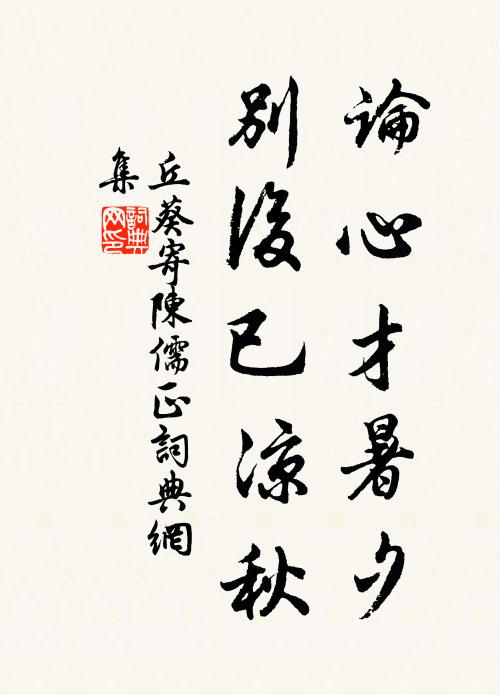 論心才暑夕
別後已凉秋
丘葵寄陳儒正詞典網
集
詞典
网印